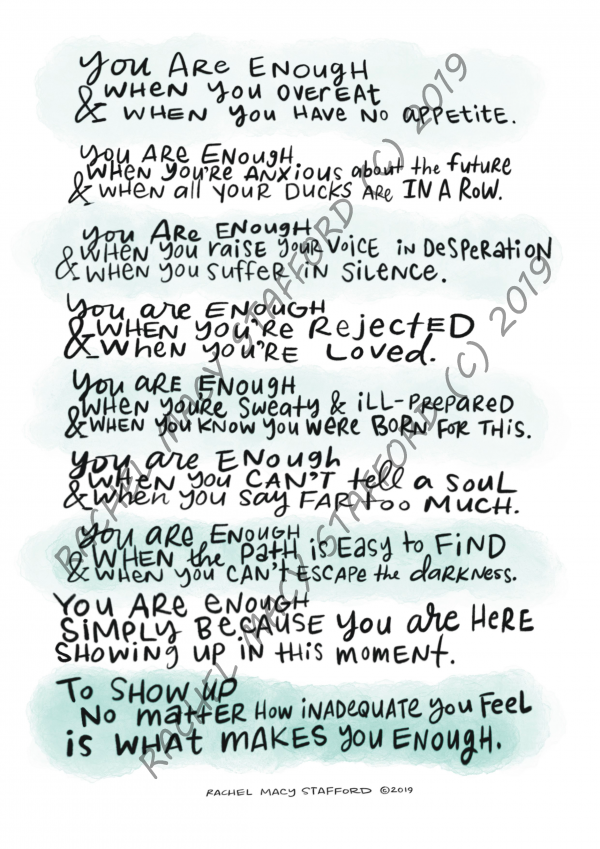 You ARE ENOUGH
& WHEN YOU OVEREAT
& WHEN YOU HAVE NO APPETITE.
You ARE ENOUGH
WHEN YOU'RE ANXIOUS about the future
& WHEN all YOUR DUCKS ARE IN A ROW.
you ARE ENOUGH
WHEN YOU RAISE YOUR VOICE in DESPERATION
& WHEN you SUFFER IN SILENCE.
You are ENOUGH
& WHEN YOU'RE REJECTED
& When YOU'RE Loved.
You ARE ENOUGH
WHEN YOU'RE SWEATY & ILL-PREPARED
& WHEN YOU KNOW YOU WERE BORN FOR THIS.
you are ENOUGH
& WHEN you CAN'T tell a SOUL
& When you SAY FAR too MUCH.
You are ENOUGH
& WHEN the PATH is EASY to FIND
& WHEN YOU CAN'T ESCAPE the darkness.
YOU ARE ENOUGH
SIMPLY BECAUSE you are HERE
SHOWING UP IN this MOMENT.
To SHOW UP
NO matter HOW INADEQUATE you FEEL
is WHAT MAKES YOU ENOUGH.
RACHEL MACY STAFFORD ©2019
RACHEL MACY STAFFORD (C) 2019
RACHEL MACY STAFFORD (C) 2019